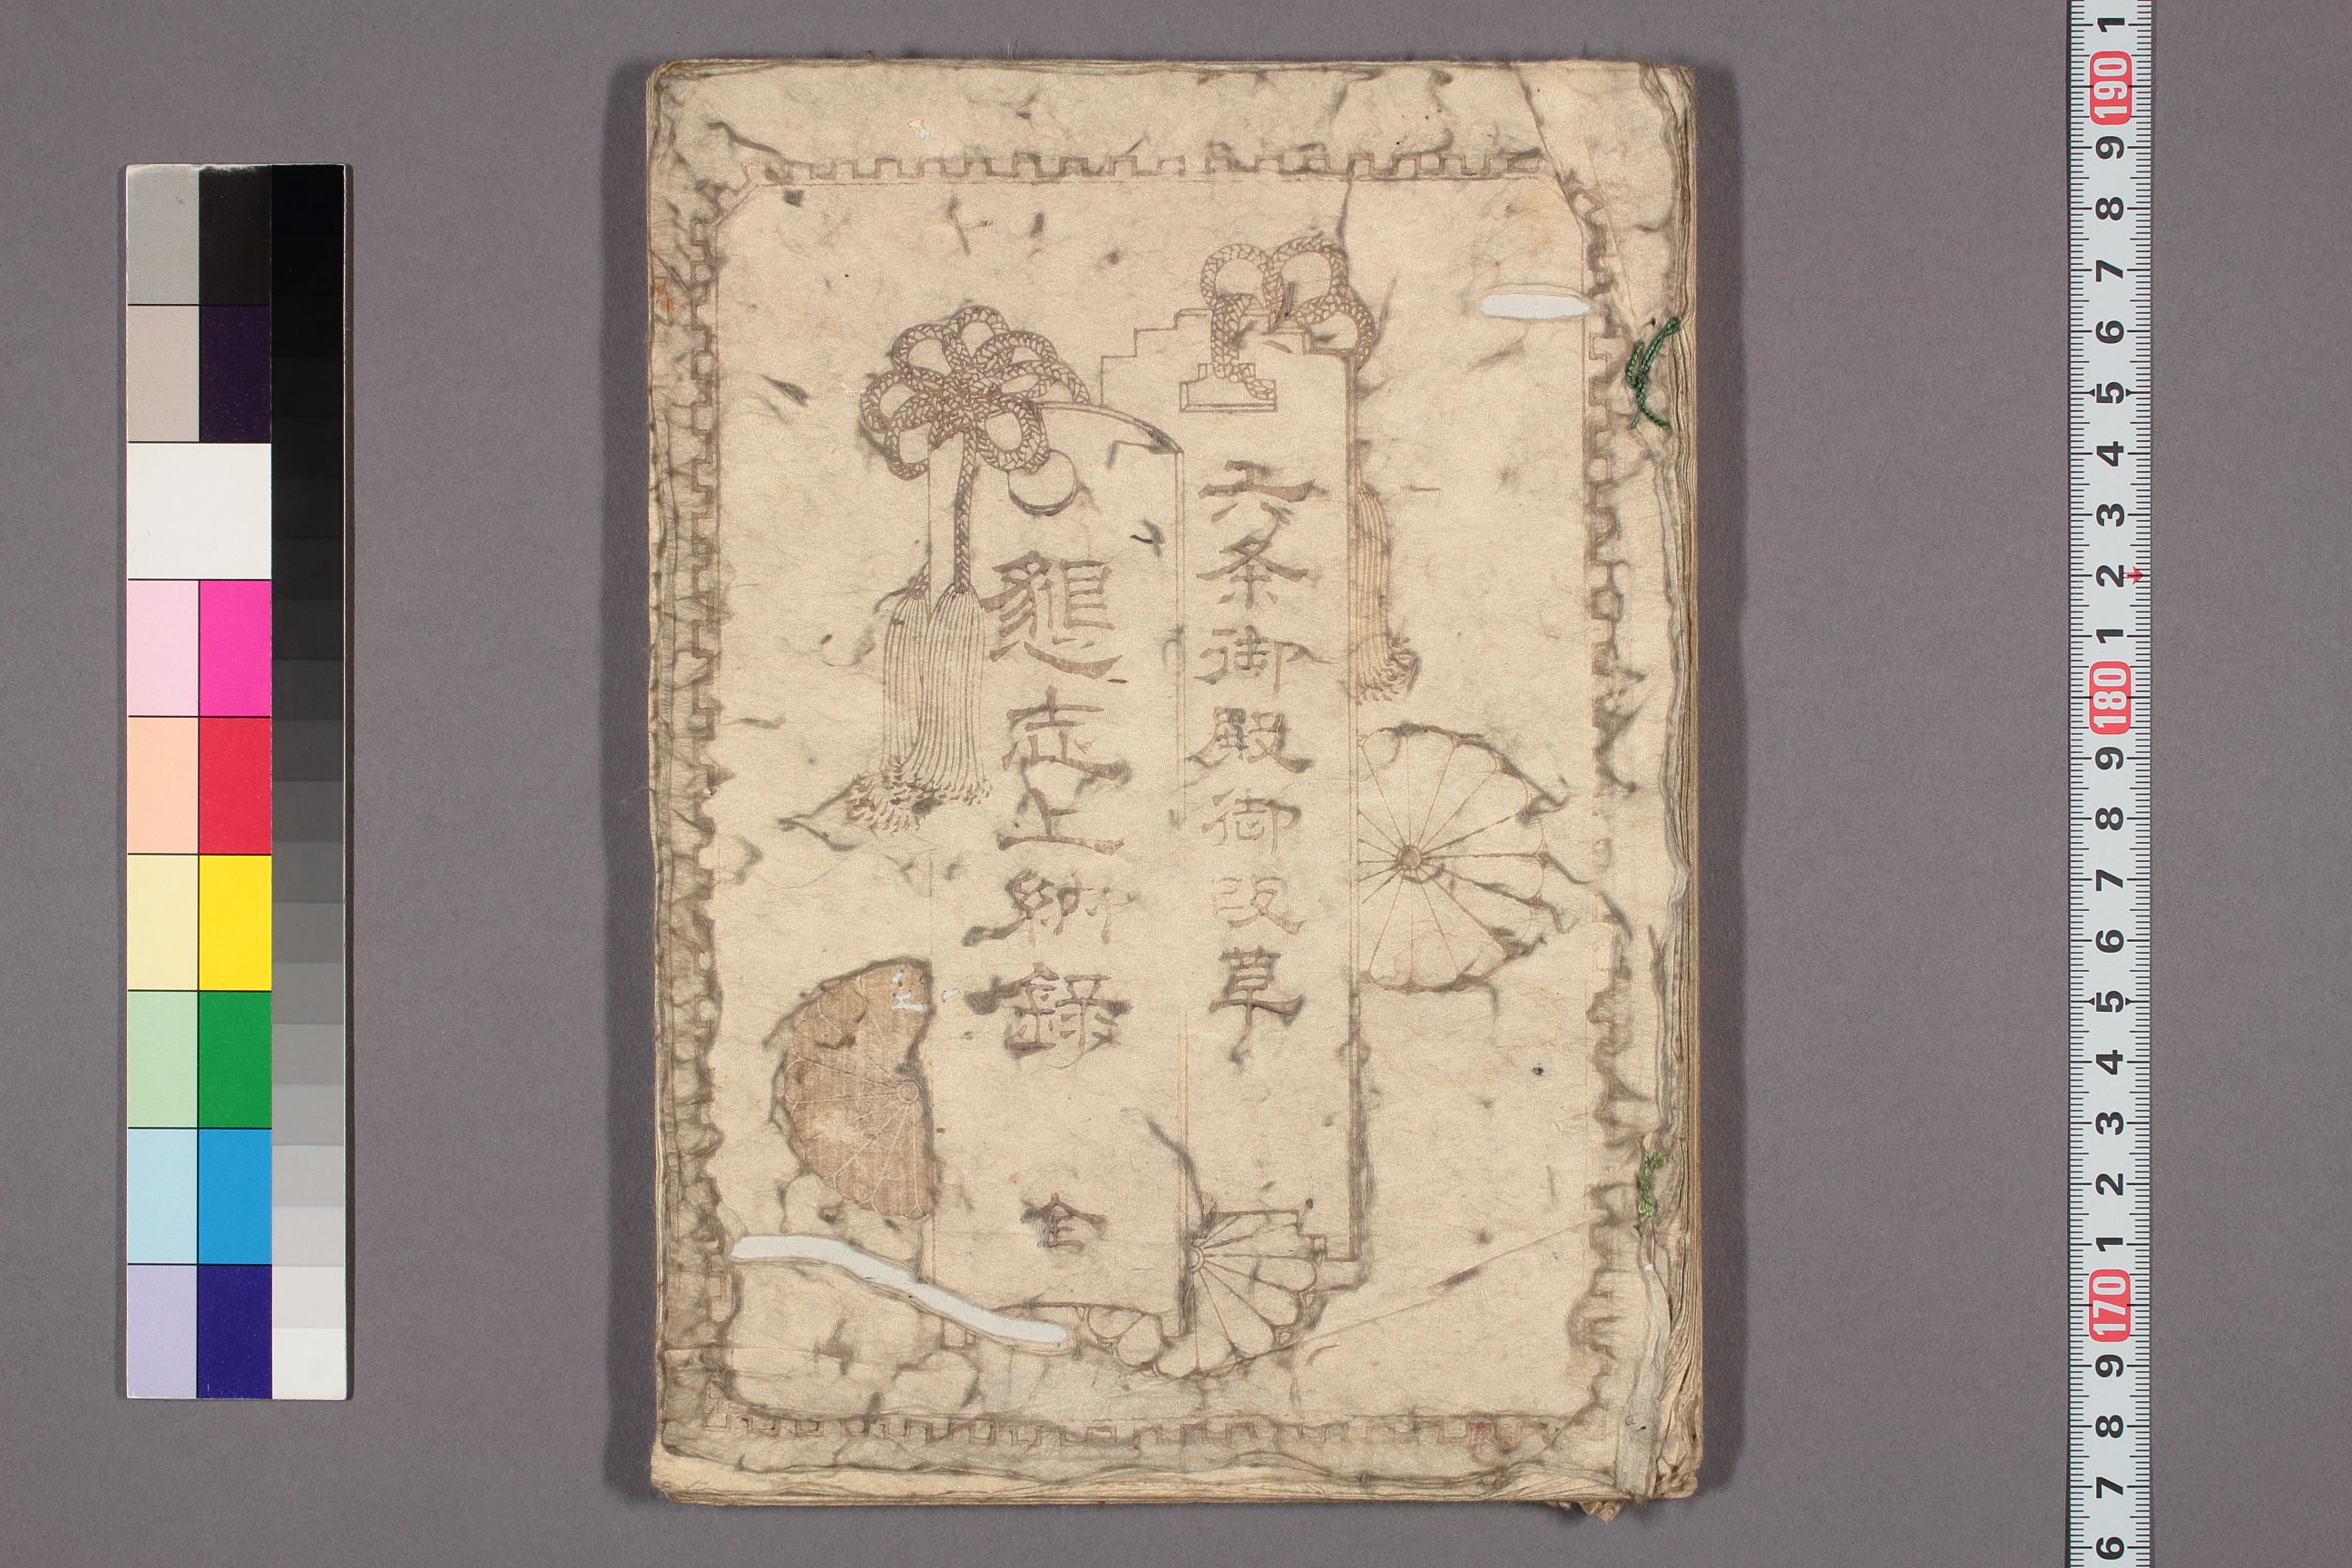 六条御殿御改革
懇志上納録
全
1 190 9 8 7 6 5 4 3 2 1 180 9 8 7 6 5 4 3 2 1 170 9 8 7 6